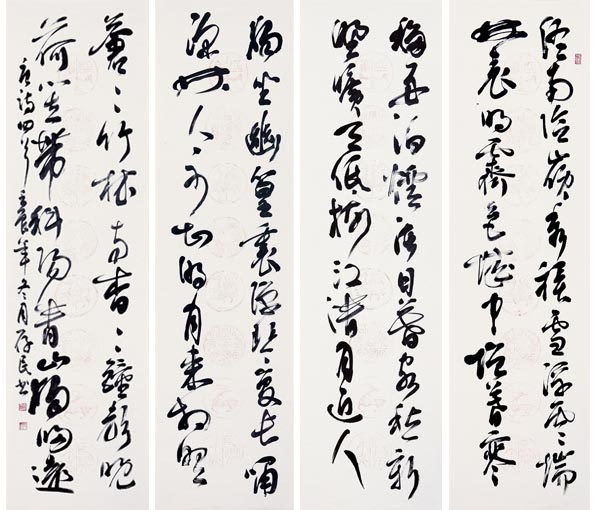 終南陰嶺秀積雪浮雲端
林表明霽色城中增暮寒
移舟泊煙渚日暮客愁新
野曠天低樹江清月近人
獨坐幽篁裏彈琴復長嘯
深林人不知明月來相照
蒼〻竹林寺杳〻鐘聲晚
荷笠帶斜陽青山獨歸遠
唐詩四首壬辰年冬月存民书